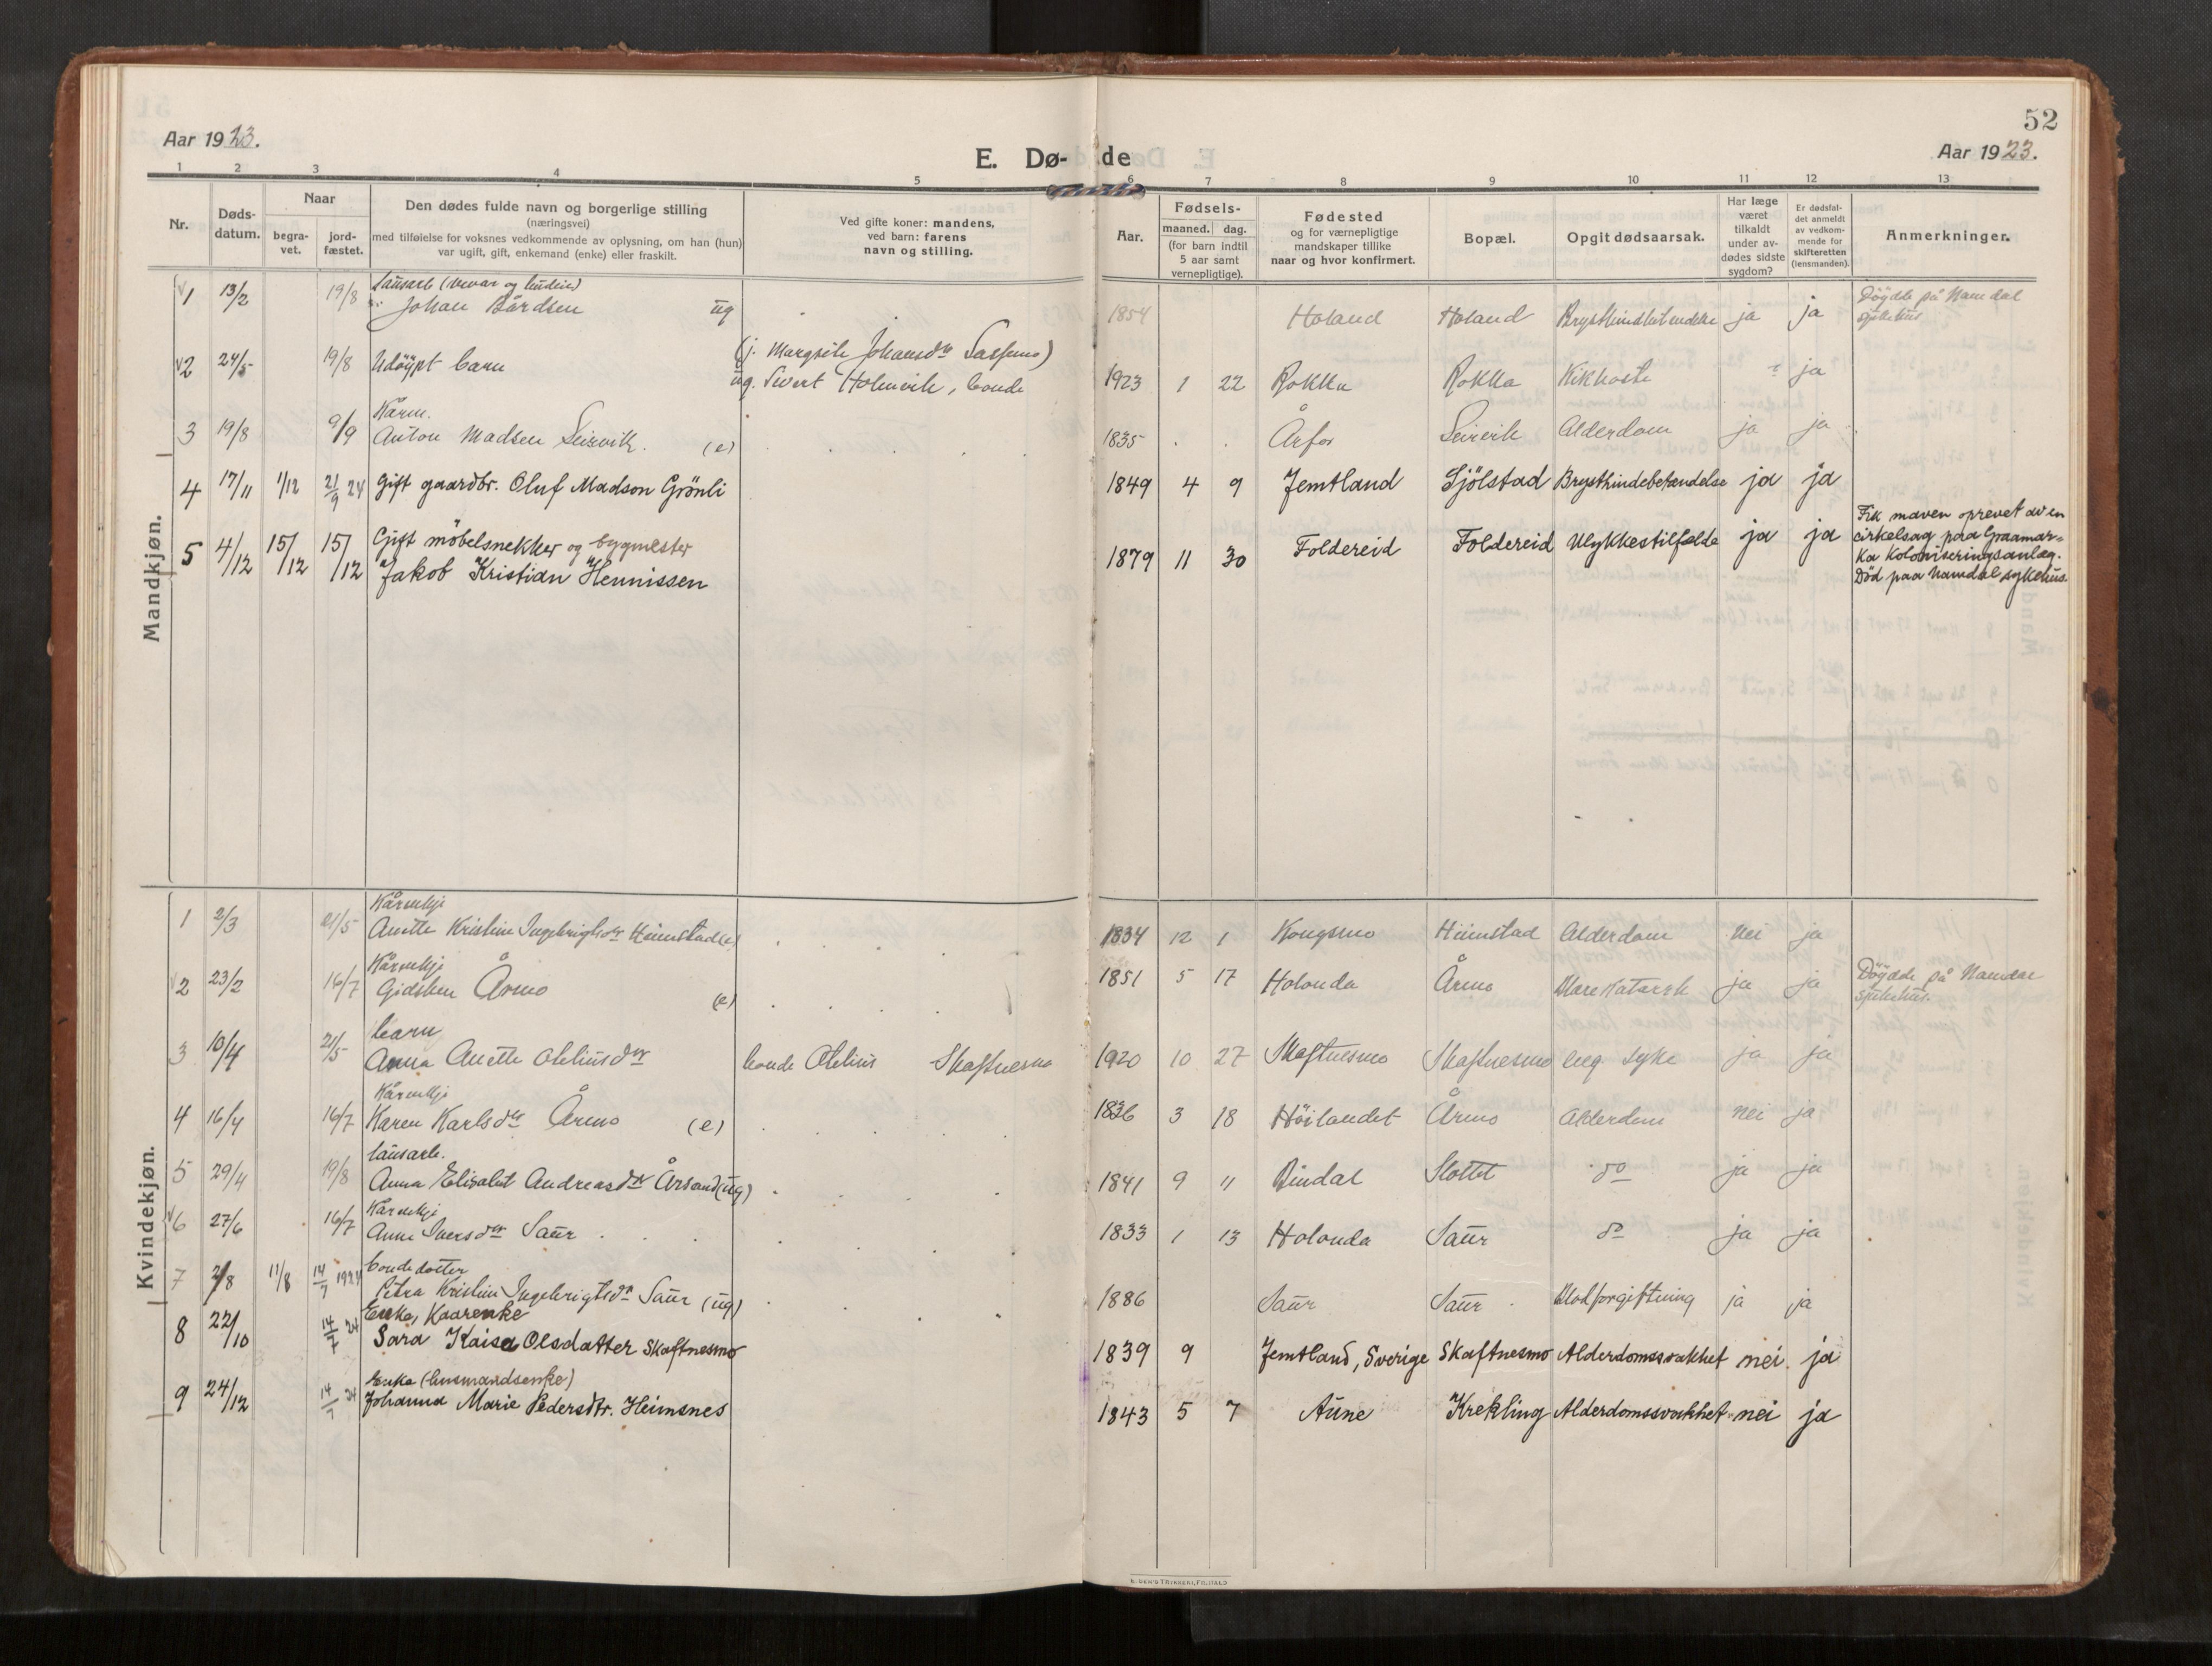 52
Aar 1923.
E. Dø- de
Aar 1923.
1 2 3 4 5 6 7 8 9 10 11 12 13
Nr.
Døds-
datum.
Naar
begra-
vet.
jord-
fæstet.
Den dødes fulde navn og borgerlige stilling
(næringsvei)
med tilføielse for voksnes vedkommende av oplysning, om han (hun)
var ugift, gift, enkemand (enke) eller fraskilt.
Ved gifte koner: mandens,
ved barn: farens
navn og stilling.
Aar.
Fødsels-
maaned. dag.
(for barn indtil
5 aar samt
vernepligtige).
Fødested
og for værnepligtige
mandskaper tillike
naar og hvor konfirmert.
Bopæl.
Opgit dødsaarsak.
Har læge
været
tilkaldt
under av-
dødes sidste
sygdom?
Er dødsfal-
det anmeldt
av vedkom-
mende for
skifteretten
(lensmanden).
Anmerkninger.
Mandkjøn.
1 13/2 19/8 Johan Bårdsen ug 1854 Holand Holand ja ja Döydde på Namdal
sjukehus
2 24/5 19/8 Udöypt barn
ug. Sivert Holmvik, bonde 1923 1 22 Rokka Rokka Kikhoste ja
Kårm.
3 19/8 9/9 Anton Madsen Seirvik. (e) 1835 Årfor Seirvik Alderdom ja ja
4 17/11 1/12 21/9 24 Gift gaardbr. Oluf Madson Grönli 1849 4 9 Jemtland Sjölstad Brysthindebetændelse ja ja
5 4/12 15/12 15/12 Gift möbelsnekker og bygmester
Jakob Kristian Hennissen 1879 11 30 Foldereid Foldereid Ulykkestilfælde ja ja
Fik maven oprevet av en
cirkelsag paa Graamar-
ka Koloniseringsanlæg.
Död paa Namdal sykehus.
Kvindekjøn.
Kårenkje
1 2/3 21/5 Anette Kristine Ingebrigtsdtr Heimstad (e) 1834 12 1 Kongsmo Heimstad Alderdom nei ja
Kårenkje
2 23/2 16/7 Gidsken Årmo (e) 1851 5 17 Holonda Årmo ja ja Döydde på Namdal
sjukehus.
barn
3 10/4 21/5 Anna Anette Otheliusdtr bonde Othelius Skaftnesmo 1920 10 27 Skaftnesmo Skaftnesmo eng. syke ja ja
Kårenkje
4 16/4 16/7 Karen Karlsdtr Årmo (e) 1836 3 18 Höilandet Årmo Alderdom nei ja
lausarb.
5 29/4 19/8 Anna Elisabet Andreasdtr Årsand (ug) 1841 9 11 Bindal Slottet do ja ja
Kårenkje
6 27/6 16/7 Anne Iversdtr Saur 1833 1 13 Holonda Saur do ja ja
bondedotter
7 2/8 11/8 14/7 1924 Petra Kristine Ingebrigtsdtr Saur (ug) 1886 Saur Saur Blodforgiftning ja ja
Enke, Kaarenke
8 22/10 14/7 24 Sara Kaisa Olsdatter Skaftnesmo 1839 9 Jemtland, Sverige Skaftnesmo Alderdomssvakhet nei. ja
Enke (husmandsenke)
9 24/12 14/7 24 Johanna Marie Pedersdtr. Heimsnes 1843 5 7 Aune Krekling Alderdomssvakhet nei ja